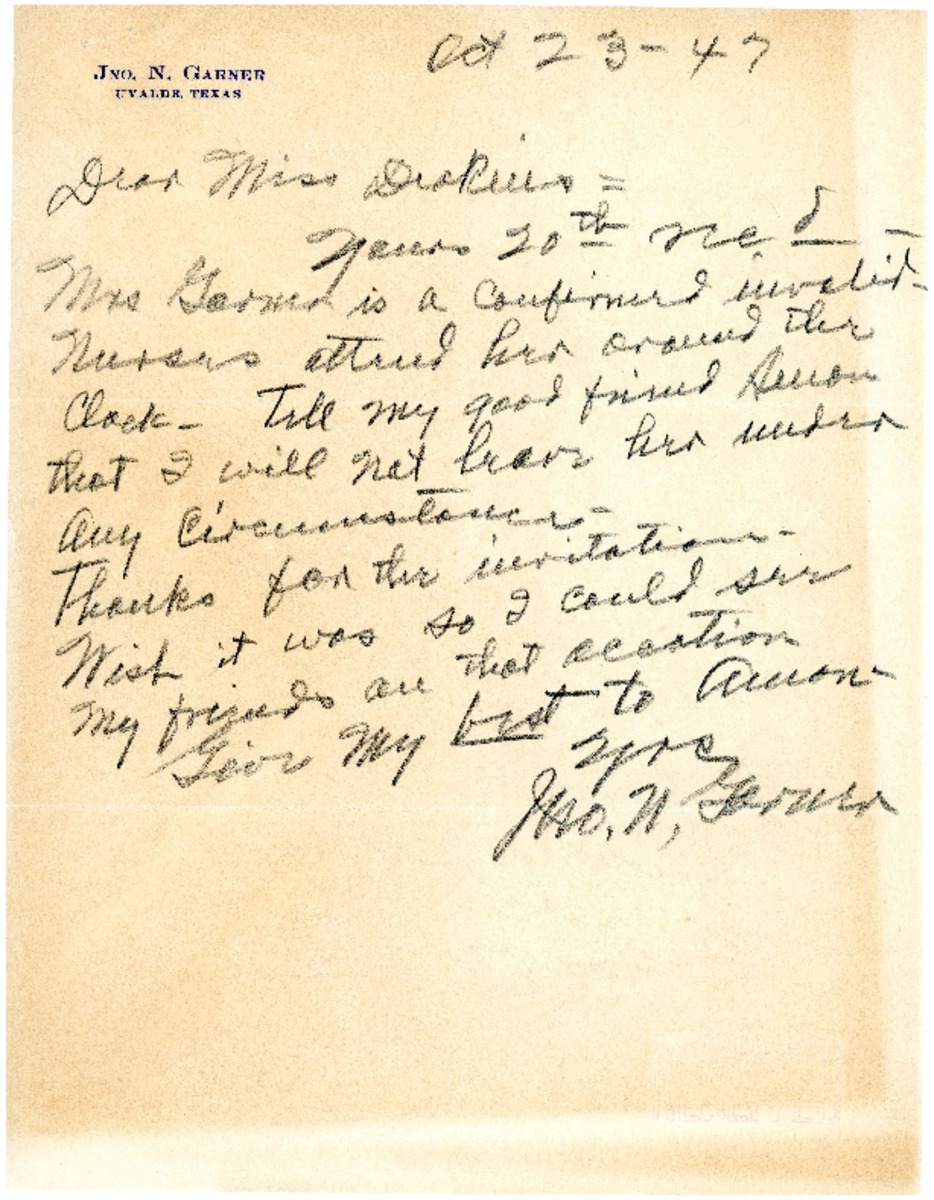 Jno. N. Garner
Uvalde, Texas
Oct 23-47
Dear Miss Deakins =
Yours 20th rec d -
Mrs Garner is a confirmed invalid -
Nurses attend her around the
Clock - Tell my good friend Amon
that I will not leave her under
any circumstance -
Thanks for the invitation -
Wish it was so I could see
my friends on that occation
Give my best to Amon -
Yrs
Jno. N. Garner